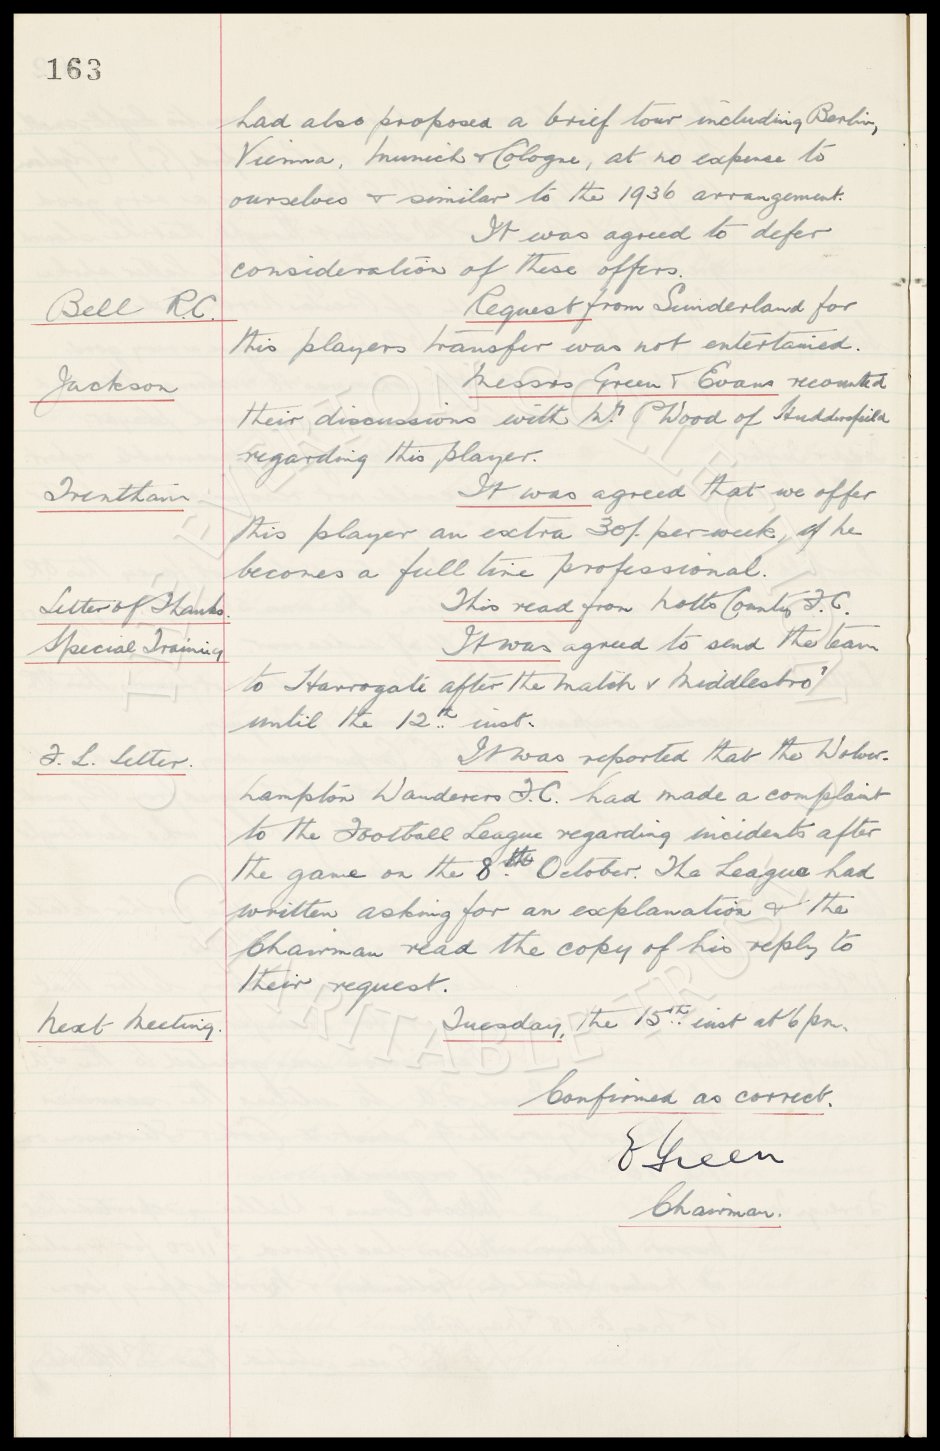 163
had also proposed a brief tour including Berlin,
Vienna, Munich & Cologne, at no expense to
ourselves & similar to the 1936 arrangement.
It was agreed to defer
consideration of these offers.
Bell R.C. Request from Sunderland for
this players transfer was not entertained.
Jackson Messrs Green & Evans recounted
their discussions with Mr. P Wood of Huddersfield
regarding this player.
Trentham It was agreed that we offer
this player an extra 30/. per week, if he
becomes a full time professional.
Letter of Thanks. This read from Notts County F.C.
Special Training It was agreed to send the team
to Harrogate after the match v Middlesbro'
until the 12th inst.
F. L. Letter. It was reported that the Wolver-
hampton Wanderers F.C. had made a complaint
to the Football League regarding incidents after
the game on the 8th October. The League had
written asking for an explanation & the
Chairman read the copy of his reply to
their request.
Next Meeting. Tuesday, the 15th inst at 6 pm.
Confirmed as correct.
E Green
Chairman.
THE EVERTON COLLECTION
CHARITABLE TRUST